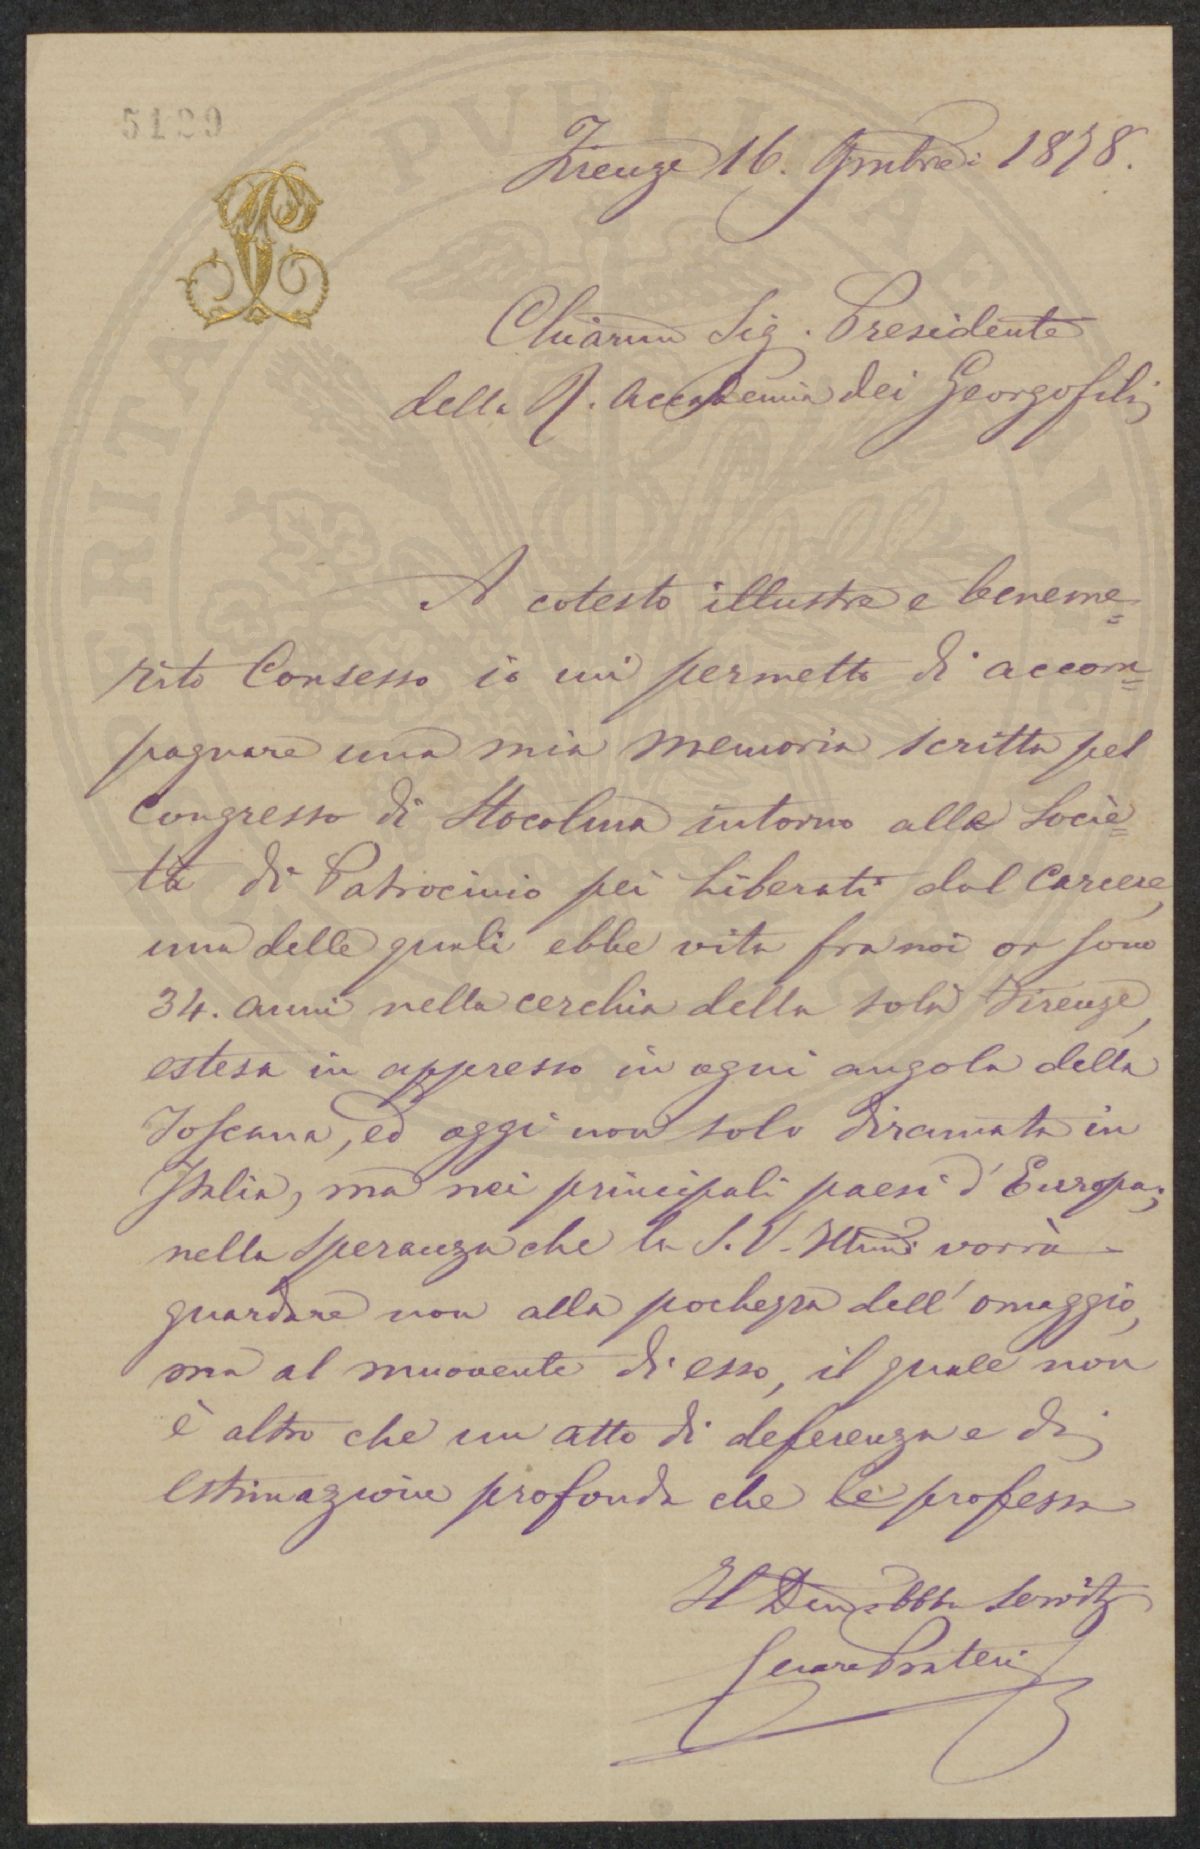 5129
Firenze 16. 9mbre 1878.
Chiarmo Sig. Presidente
della R. Accademia dei Georgofili
A cotesto illustre e beneme=
rito Consesso io mi permetto di accom=
pagnare una mia memoria scritta pel
Congresso di Stocolma intorno alle Socie=
tà di Patrocinio pei liberati dal Carcere,
una delle quali ebbe vita fra noi or sono
34. anni nella cerchia della sola Firenze,
estesa in appresso in ogni angolo della
Toscana, ed oggi non solo diramata in
Italia, ma nei principali paesi d'Europa;
nella speranza che la S.V. Illma vorrà
guardare non alla pochezza dell'omaggio,
ma al muovente di esso, il quale non
è altro che un atto di deferenza e di
estimazione profonda che le professa
Il Devmo Obbmo Servitre